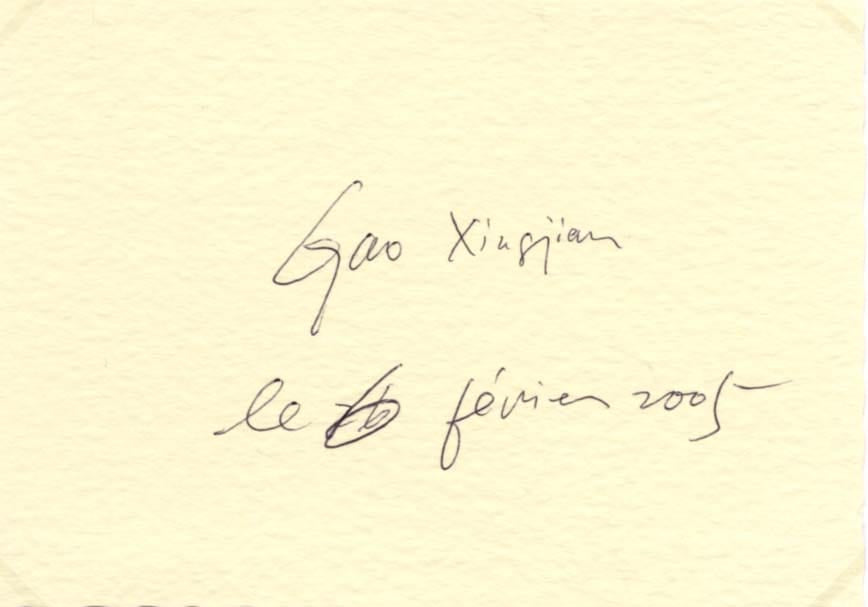 Gao Xingjian
le février 2005